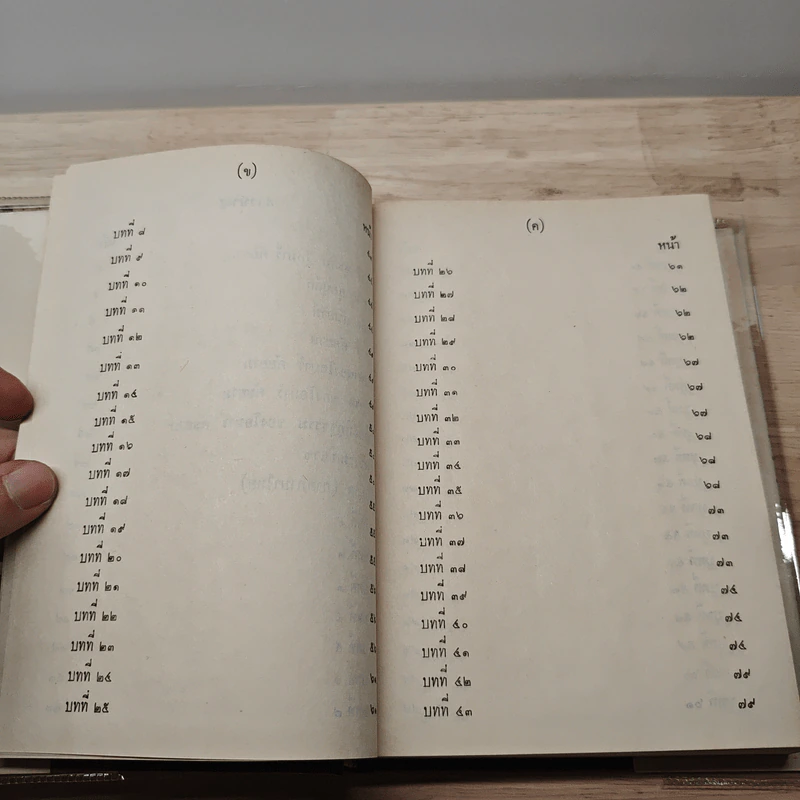 (ข)
บทที่ ๘
บทที่ ๙
บทที่ ๑๐
บทที่ ๑๑
บทที่ ๑๒
บทที่ ๑๓
บทที่ ๑๔
บทที่ ๑๕
บทที่ ๑๖
บทที่ ๑๗
บทที่ ๑๘
บทที่ ๑๙
บทที่ ๒๐
บทที่ ๒๑
บทที่ ๒๒
บทที่ ๒๓
บทที่ ๒๔
บทที่ ๒๕
(ค)
หน้า
บทที่ ๒๖ ๖๑
บทที่ ๒๗ ๖๒
บทที่ ๒๘ ๖๒
บทที่ ๒๙ ๖๒
บทที่ ๓๐ ๖๗
บทที่ ๓๑ ๖๗
บทที่ ๓๒ ๖๗
บทที่ ๓๓ ๖๘
บทที่ ๓๔ ๖๘
บทที่ ๓๕ ๖๘
บทที่ ๓๖ ๗๓
บทที่ ๓๗ ๗๓
บทที่ ๓๘ ๗๓
บทที่ ๓๙ ๗๔
บทที่ ๔๐ ๗๔
บทที่ ๔๑ ๗๔
บทที่ ๔๒ ๗๙
บทที่ ๔๓ ๗๙